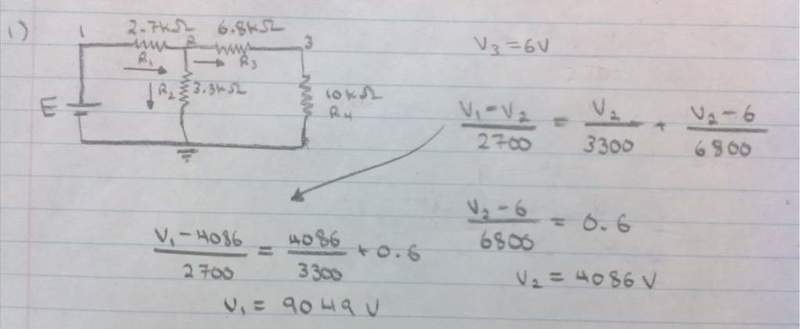 1)
1 2.7kΩ 2 6.8kΩ 3
R₁ R₃
E R₂ 3.3kΩ 10kΩ
R₄
V₃ = 6V
(V₁ - V₂)/2700 = V₂/3300 + (V₂ - 6)/6800
(V₂ - 6)/6800 = 0.6
V₂ = 4086 V
(V₁ - 4086)/2700 = 4086/3300 + 0.6
V₁ = 9049 V